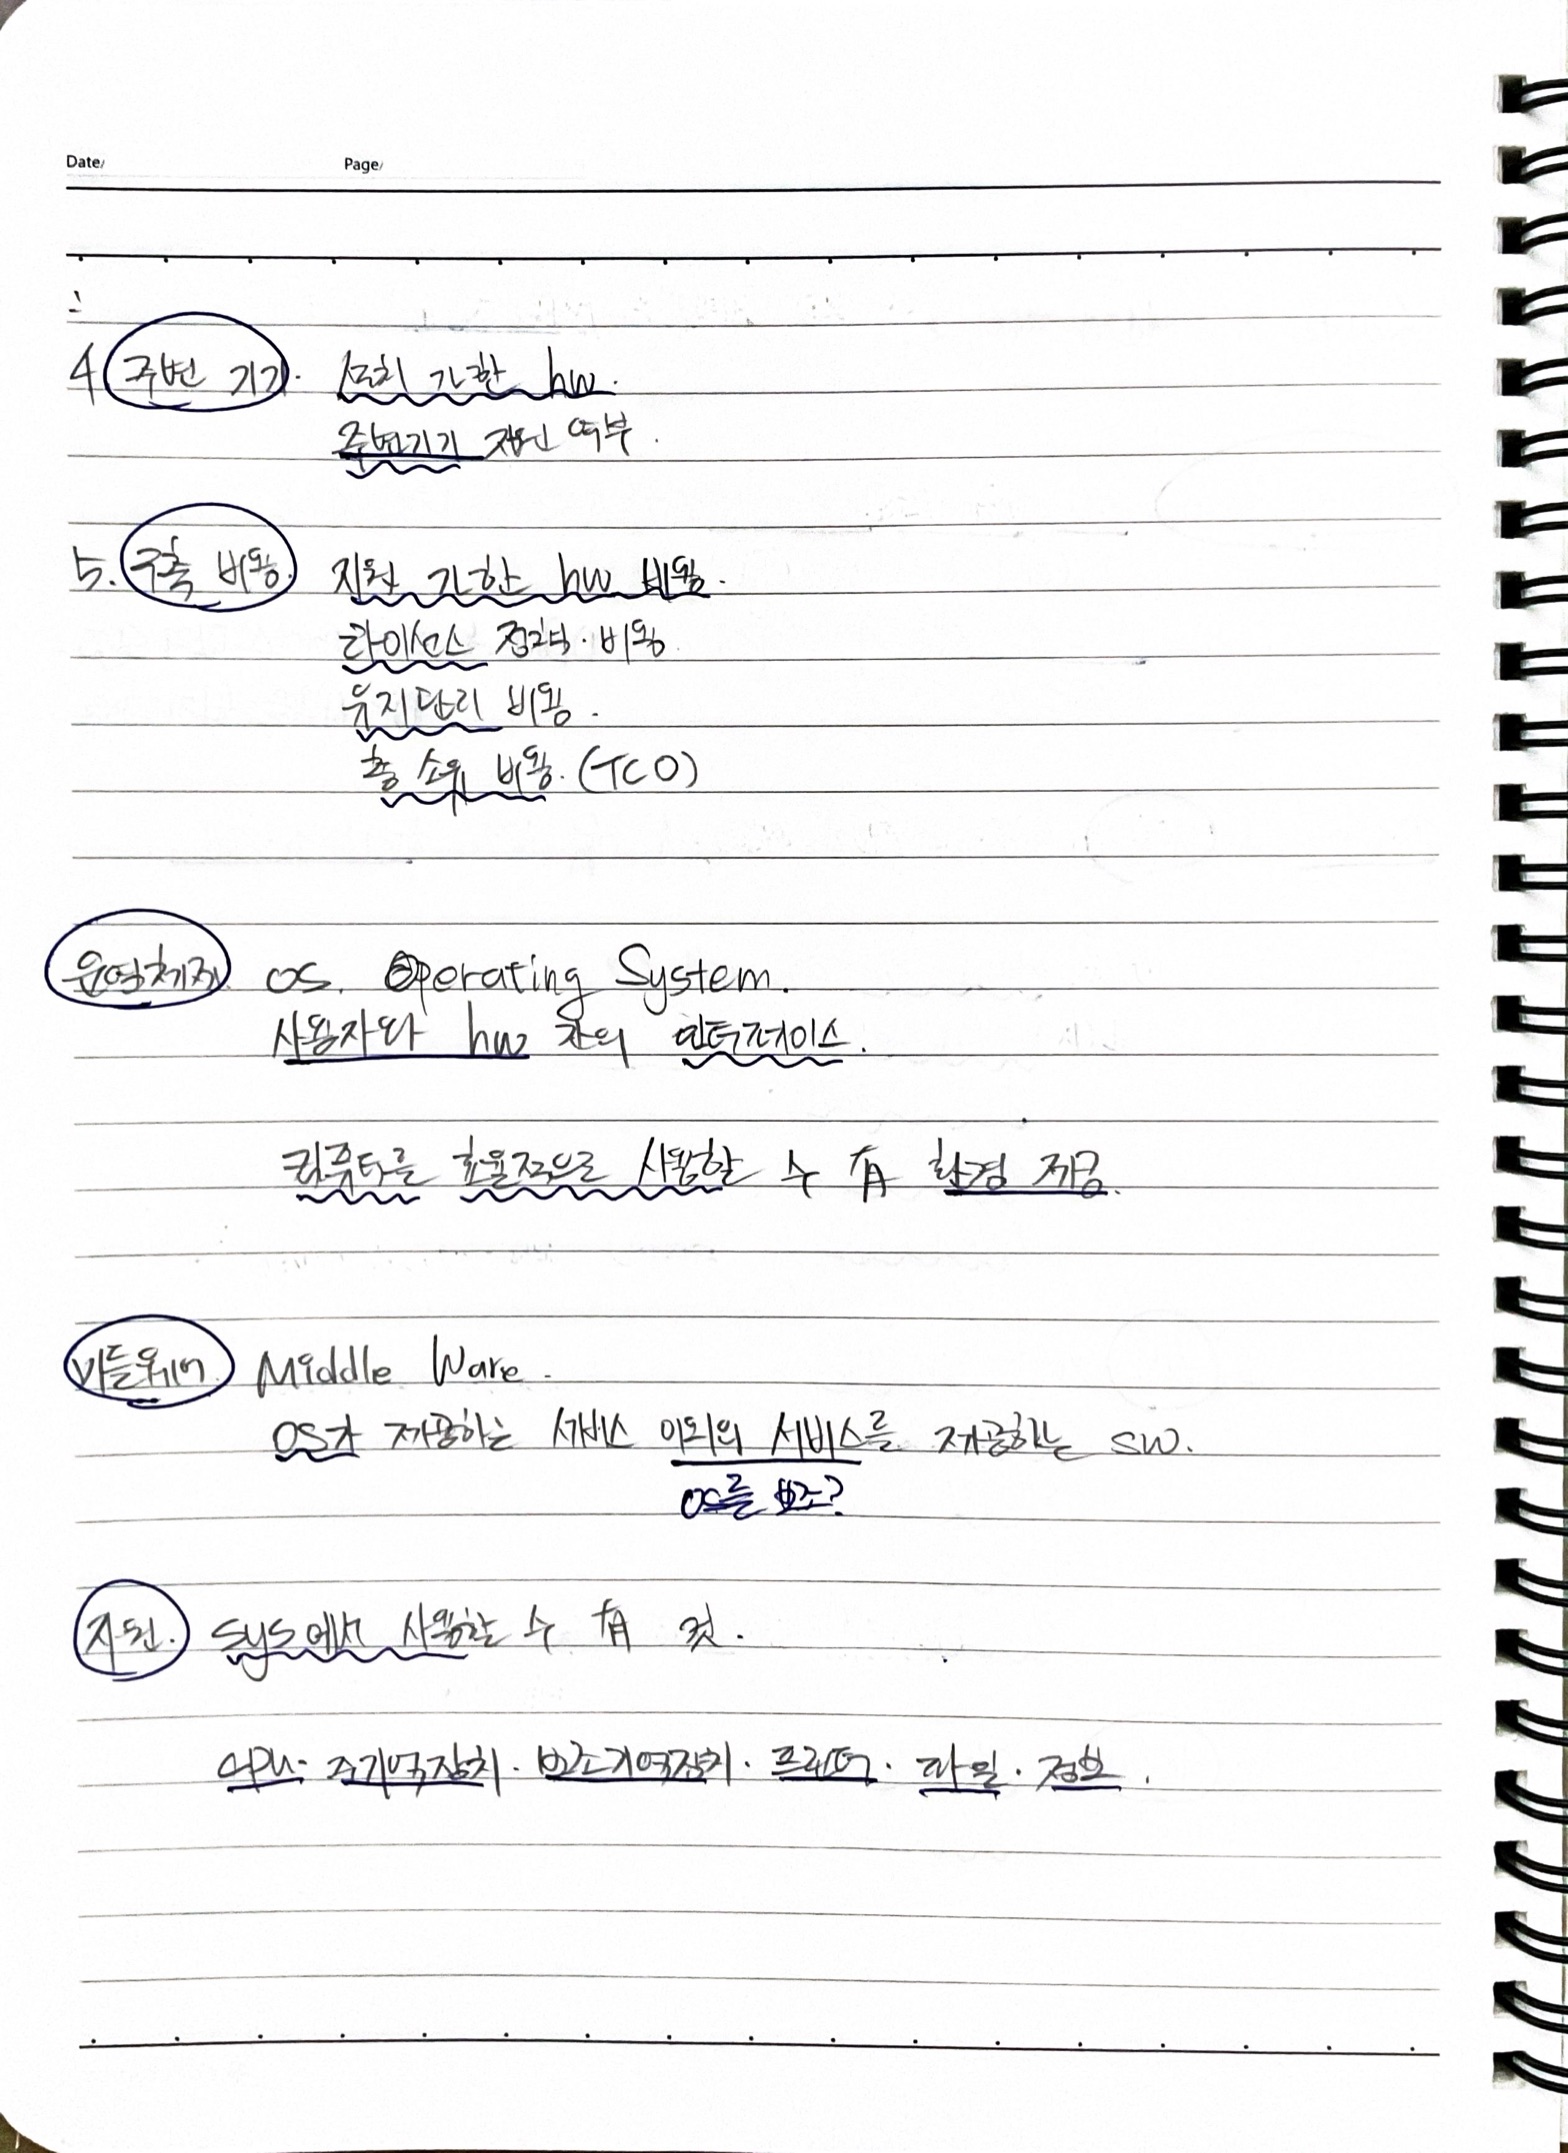 Date/ Page/
4 주변 기기. 설치 가능한 hw.
주변기기 지원 여부.
5. 구축 비용. 지원 가능한 hw 비용.
라이선스 정책·비용.
유지관리 비용.
총 소유 비용. (TCO)
운영체제 OS. Operating System.
사용자와 hw 간의 인터페이스.
컴퓨터를 효율적으로 사용할 수 有 환경 제공.
미들웨어 Middle Ware.
OS가 제공하는 서비스 이외의 서비스를 제공하는 SW.
OS를 보조?
자원. sys에서 사용할 수 有 것.
CPU· 주기억장치· 보조기억장치· 프린터· 파일· 정보.